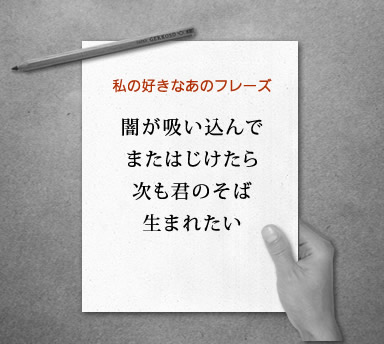 私の好きなあのフレーズ
闇が吸い込んで
またはじけたら
次も君のそば
生まれたい